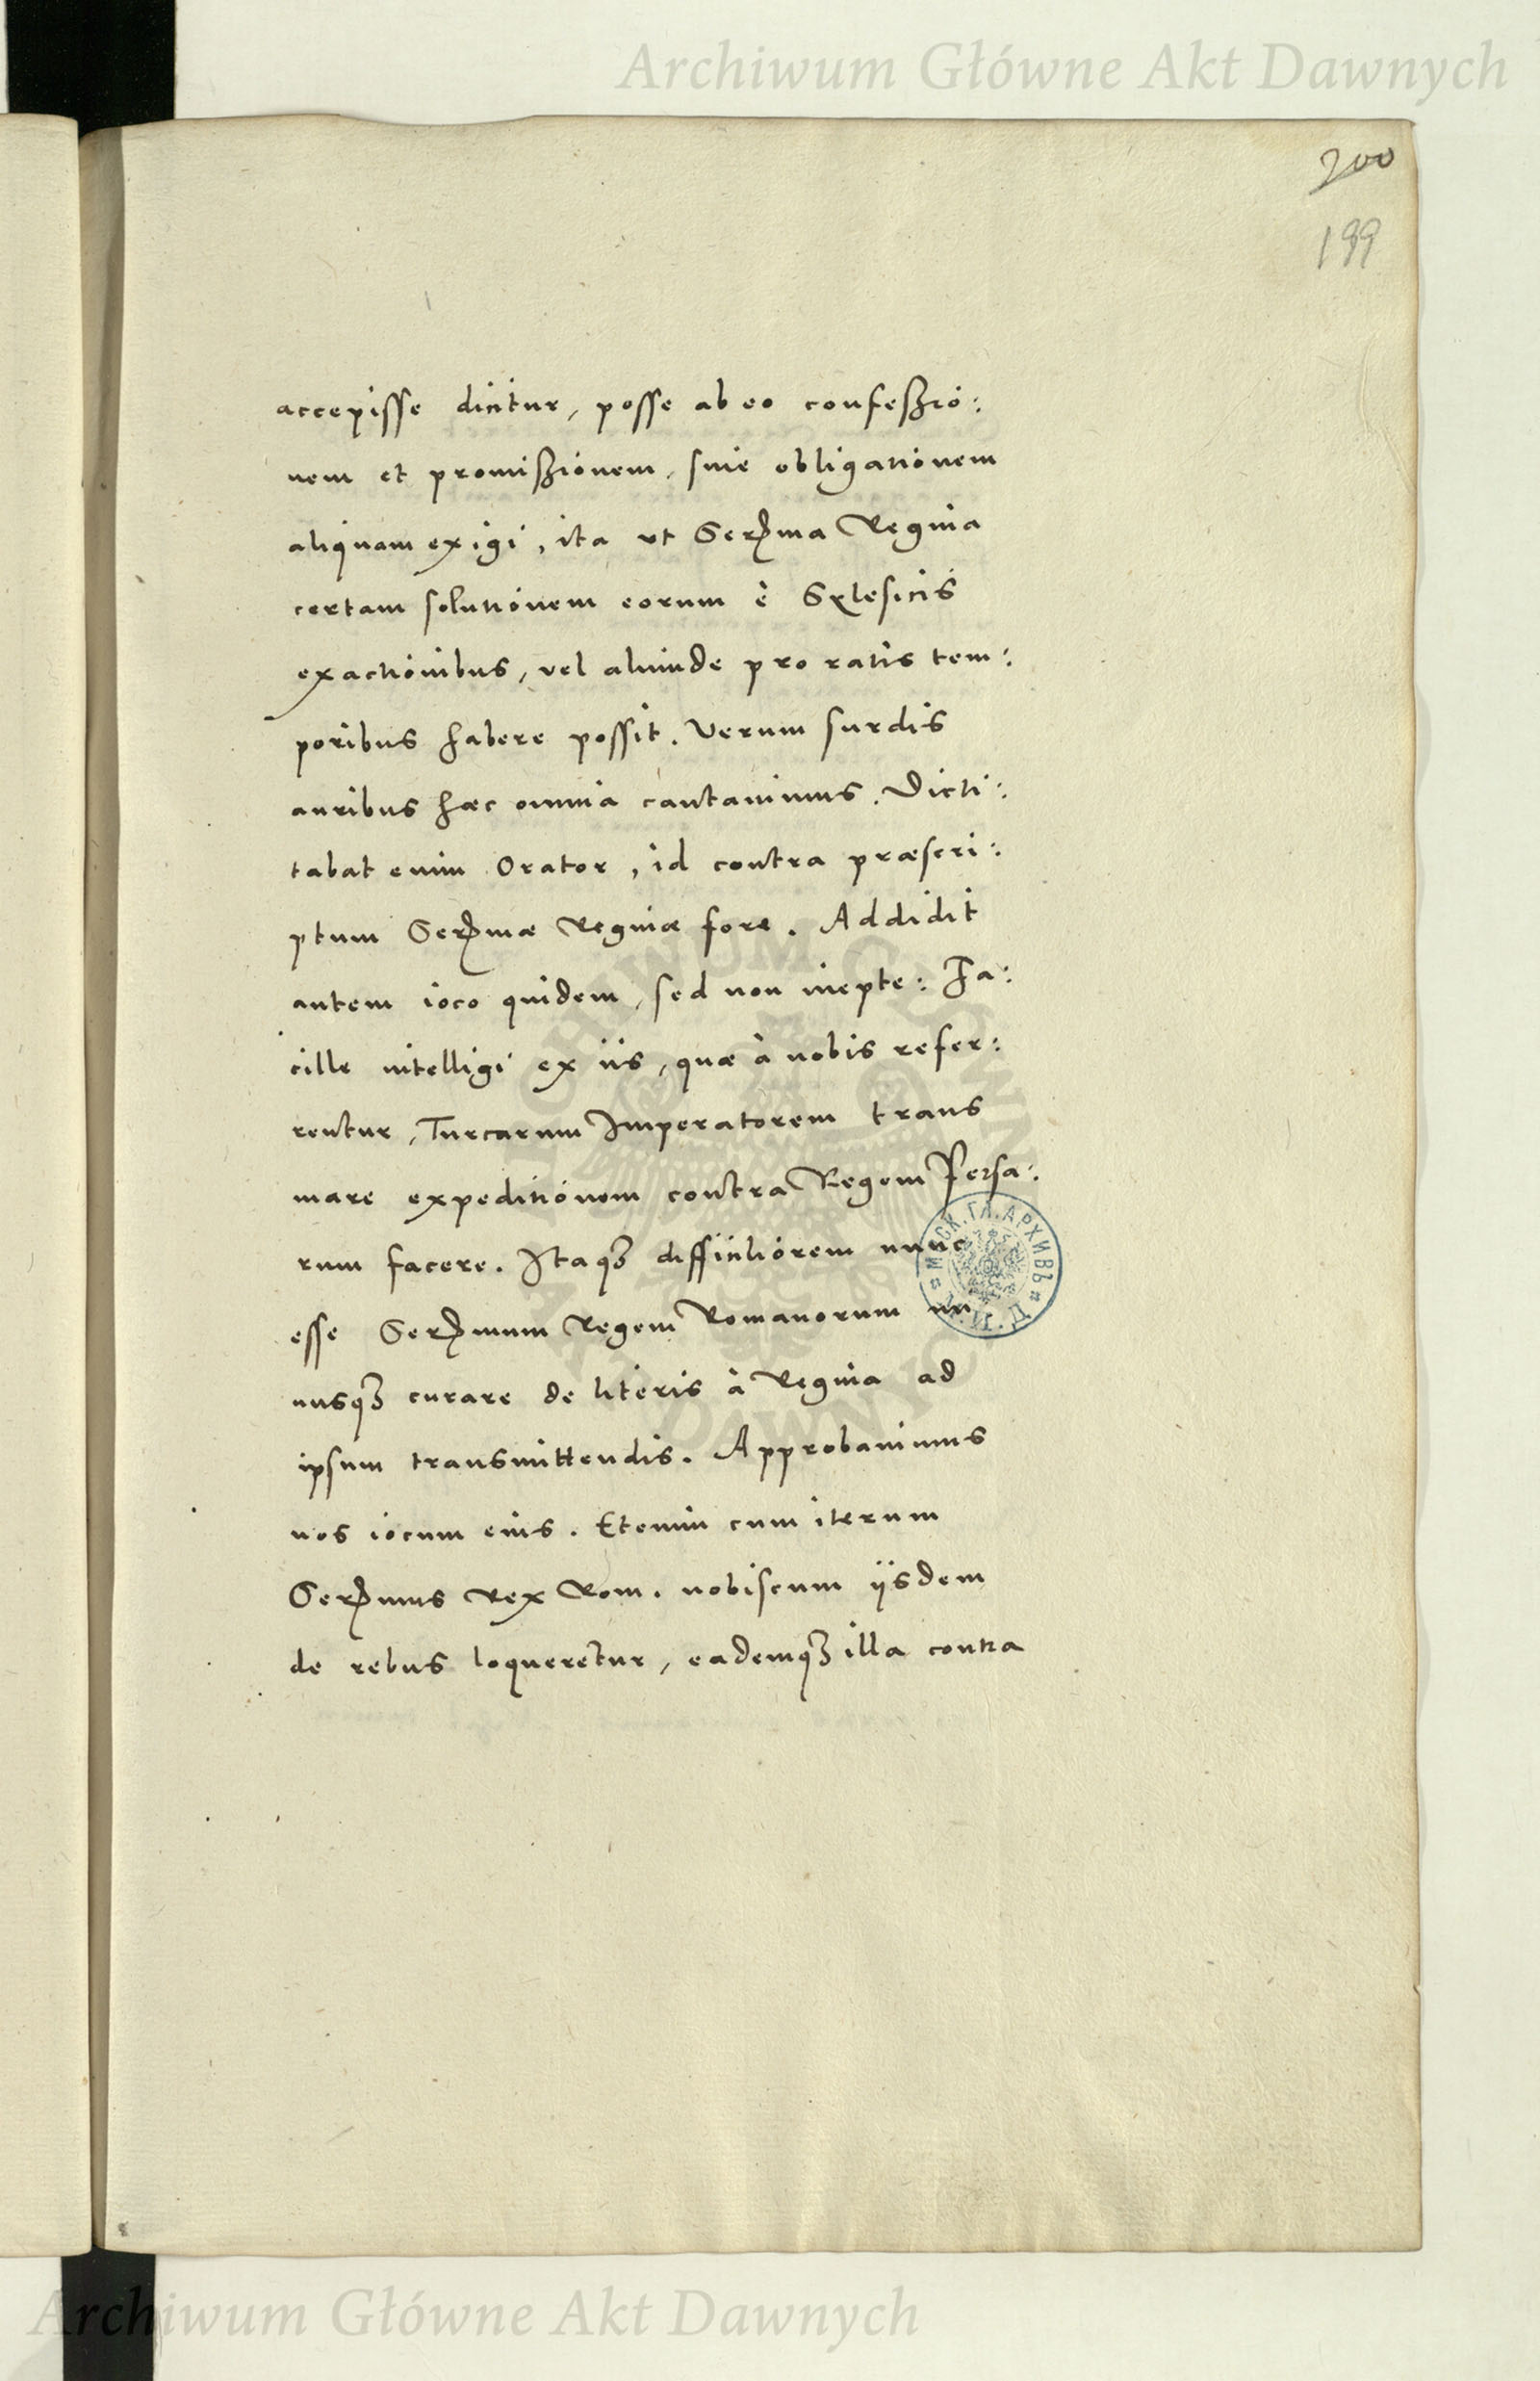 Archiwum Główne Akt Dawnych
200
199
accepisse dicitur, posse ab eo confeßio:
nem et promißionem, siue obligationem
aliquam exigi, ita vt Serma Regina
certam solutionem eorum è Sylesicis
exactionibus, vel aliunde pro ratis tem:
poribus habere possit. Verum surdis
auribus hæc omnia cantauimus. Dicti:
tabat enim Orator, id contra præscri:
ptum Sermæ Reginæ fore. Addidit
autem ioco quidem, sed non inepte: Fa:
cille intelligi ex iis, quæ à nobis refer:
rentur, Turcarum Imperatorem trans
mare expeditionem contra Regem Persa:
rum facere. Itaqȝ difficiliorem nunc
esse Sermum Regem Romanorum
nusqȝ curare de literis à Regina ad
ipsum transmittendis. Approbauimus
nos iocum eius. Etenim cum iterum
Sermus Rex Rom. nobiscum iisdem
de rebus loqueretur, eademqȝ illa contra
МОСК. ГЛ. АРХИВЪ
Archiwum Główne Akt Dawnych